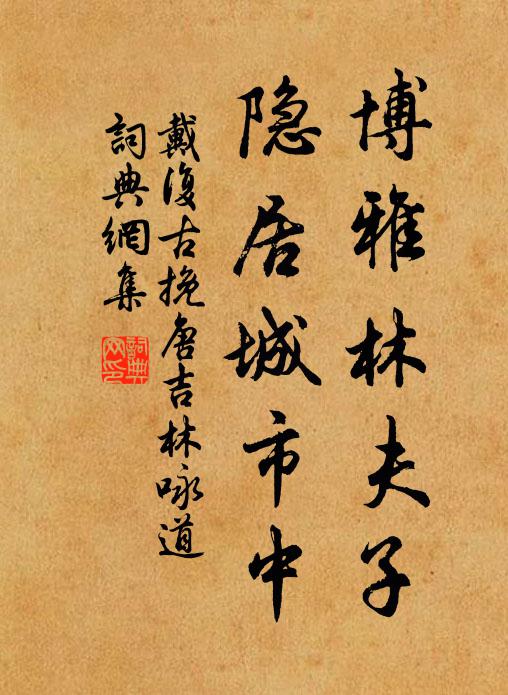 博雅林夫子
隐居城市中
戴復古挽唐吉林咏道
詞典網集
詞典網印